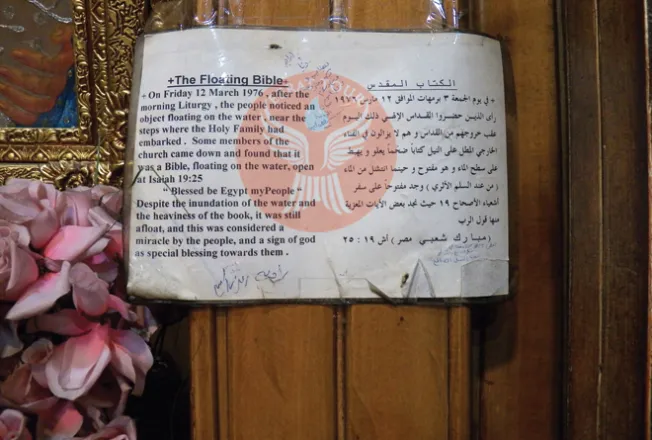 +The Floating Bible+
+ On Friday 12 March 1976 , after the
morning Liturgy , the people noticed an
object floating on the water , near the
steps where the Holy Family had
embarked . Some members of the
church came down and found that it
was a Bible, floating on the water, open
at Isaiah 19:25
" Blessed be Egypt myPeople "
Despite the inundation of the water and
the heaviness of the book, it was still
afloat, and this was considered a
miracle by the people, and a sign of god
as special blessing towards them .
الكتاب المقدس
+ في يوم الجمعة ٣ برمهات الموافق ١٢ مارس ١٩٧٦
رأى الذين حضروا القداس الإلهي ذلك اليوم
عقب خروجهم من القداس و هم لا يزالون في الفناء
الخارجي المطل على النيل كتاباً ضخماً يعلو و يهبط
على سطح الماء و هو مفتوح و حينما انتشل من الماء
(من عند السلم الأثري) وجد مفتوحاً على سفر
أشعياء الأصحاح ١٩ حيث نجد بعض الآيات المعزية
منها قول الرب
(مبارك شعبي مصر) أش ١٩ : ٢٥